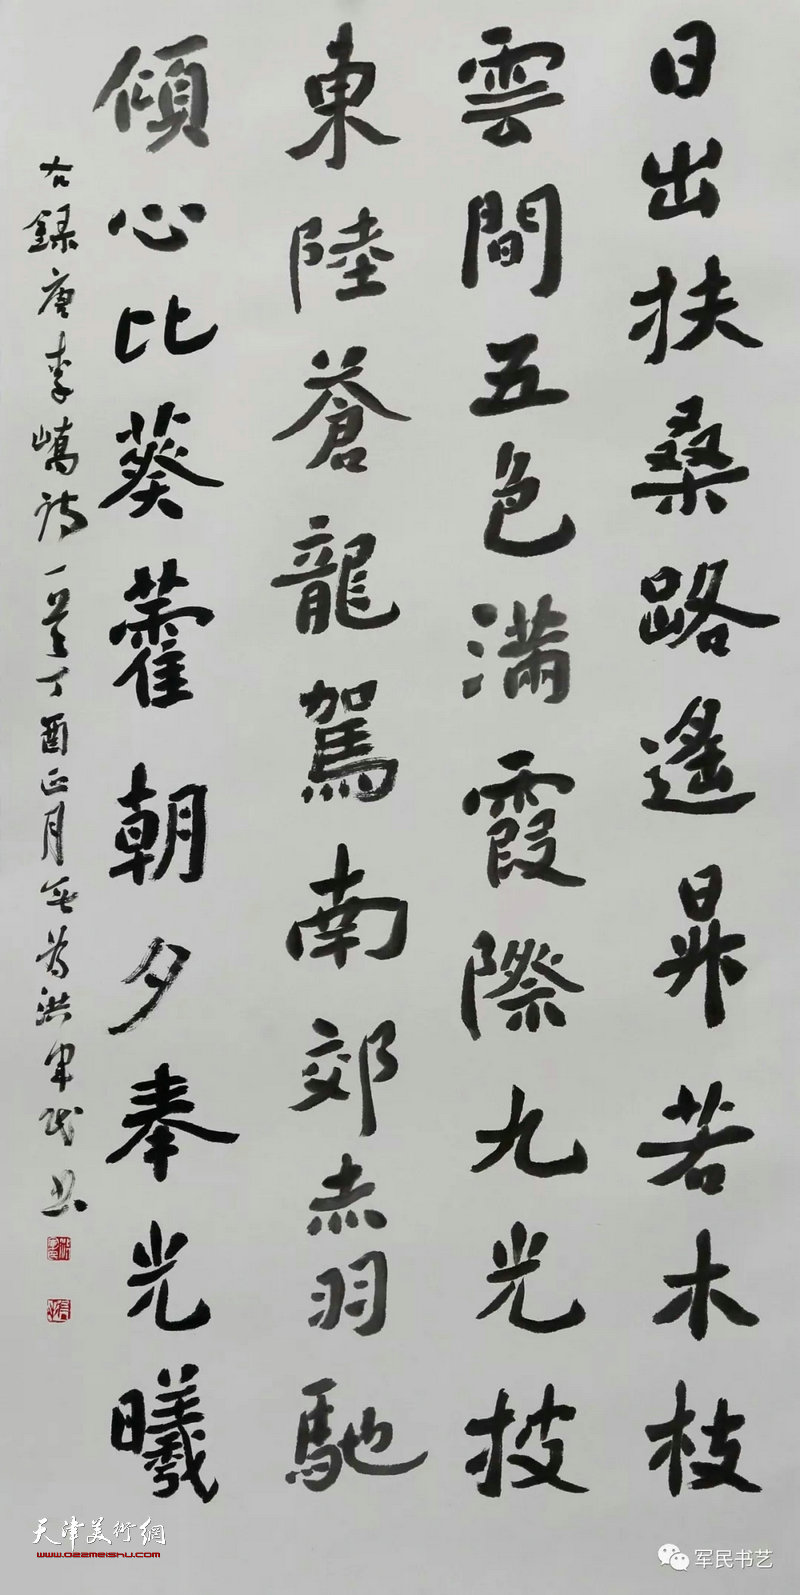 日出扶桑路遙昇若木枝
雲間五色滿霞際九光披
東陸蒼龍駕南郊赤羽馳
傾心比葵藿朝夕奉光曦
右錄唐李嶠詩一首丁酉正月洪军民书
天津美術網
www.022meishu.com
军民书艺